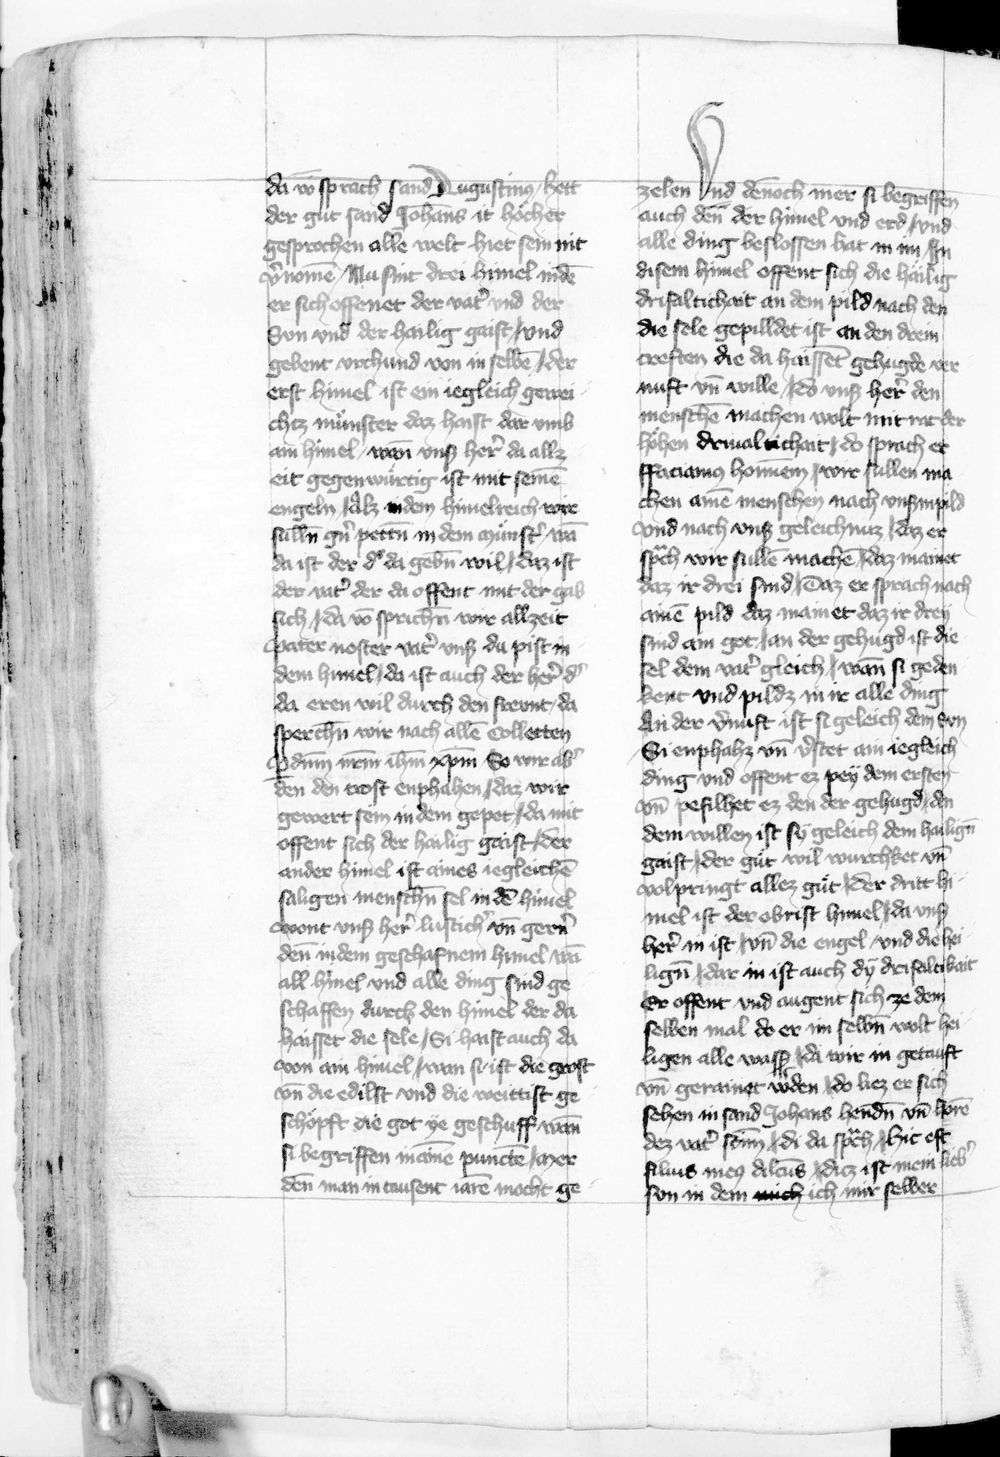 da võ sprach sand Augustinꝰ / hett
der gůt sand Johans it höcher
gesprochen alle welt hiet sein nit
v̾nomē / Nu sint drei himel in dē
er sich offenet der vat̾ vnd der
Svn vnd der hailig gaist / vnd
gebent vrchund von in selbē / der
erst himel ist ein iegleich gewei
chtz münster daz haist dar vmb
ain himel / wan̄ vnß her̾ da allz
eit gegenwürtig ist mit seinē
engeln / Alz in dem himelreich wir
sulln̄ gn̾ pettn̄ in dem münst̾ wā
da ist der d̾ da gebn̄ wil / daz ist
der vat̾ der da offent mit der gab
sich / da võ sprichn̄ wir allzeit
Pater noster vat̾ vnß du pist in
dem himel / da ist auch der her̾ d̾
da eren wil durch den frevnt / da
sperchn̄ wir nach allē Collecten
P dn̄m nr̄m ih̄m xp̄m So wir ab̾
den den trost enphahen / daz wir
gewert sein in dem gepet / da mit
offent sich der hailig gaist / der
ander himel ist aines iegleichē
saligen menschn̄ sel in dē himel
wont vnß her̾ lustich̾ vn̄ gern̾
den̄ in dem geschafnem himel wā
all himel vnd alle ding sind ge
schaffen durch den himel der da
haisset die sele / Si haist auch da
von ain himel / wan si ist die grost
vn̄ die edilst vnd die weittist ge
schöpft die got ye geschuff wan̄
si begriffen in ainē punctē / mer
den̄ man in tausent iarē mocht ge
zelen Vnd den̄och mer si begriffen
auch den̄ der himel vnd erd / vnd
alle ding beslossen hat in im / In
disem himel offent sich die hailig
drifaltichait an dem pild nach den
die sele gepilldet ist an den drein
creften die da haissēt gehugde ver
nuft vn̄ wille / do vnß her̾ den
menschē machen wolt mit rat der
höhen drivaltichait / do sprach er
ffaciamꝰ hominem / wir sullen ma
chen aine menschen nach vnßm pild
Vnd nach vnß geleichnuz / daz er
spͣch wir sullē machē / daz mainet
daz ir drei sind / Daz er sprach nach
ainē pild daz mainet daz ir dreÿ
sind ain got / an der gehugd ist die
sel dem vat̾ gleich / wan si geden
kent vnd pildz in ir alle ding
An der v̾nuft ist si geleich dem Svn
Si enphahz vn̄ v̾stet ain iegleich
ding vnd offent ez peÿ dem ersten
vn̄ pefilhet ez den der gehugd / An
dem willen ist sÿ geleich dem hailign̄
gaist / der gůt wil wurchket vn̄
volpringt allez gůt / der dritt hi
mel ist der obrist himel / da vnß
her̾ in ist / vn̄ die engel / vnd die hei
lign̄ / dar in ist auch dÿ drifaltikait
Er offent vnd augent sich ze dem
selben mal do er im selbn̄ wolt hei
ligen alle wass̾ / da wir in getauft
vn̄ gerainet w̾den / do liez er sich
sehen in sand Johans hendn̄ vn̄ hörē
dez vat̾ stim̄ / di da spͣch / Hic est
filius meꝰ dilcūs / ditz ist mein lieb̾
svn in dem mich ich mir selber